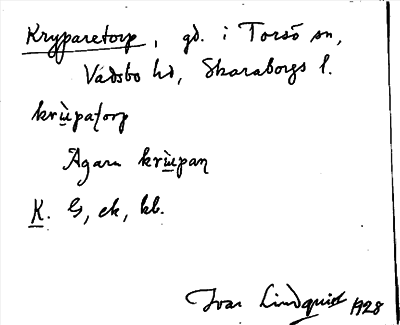 Kryparetorp, gd. i Torsö sn,
Vadsbo hd, Skaraborgs l.
krùpaʈorp
Ägaren krùpan
K. G, ek, kb.
Ivar Lindquist 1928